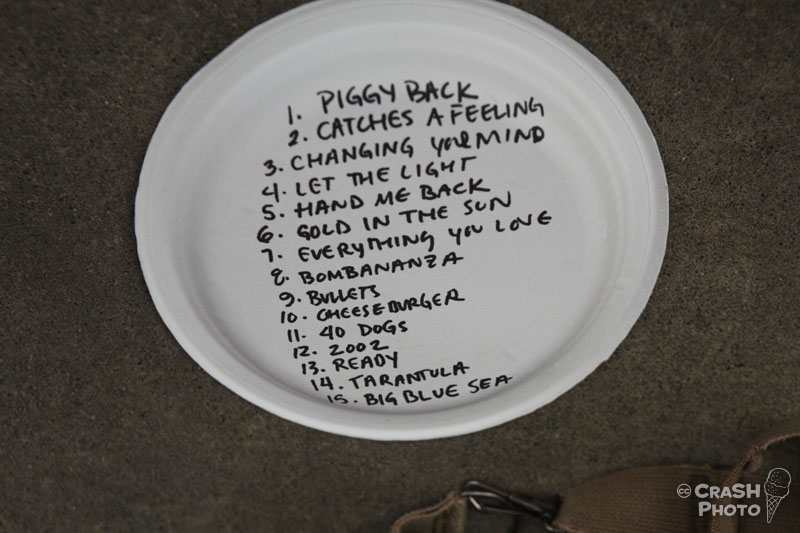 1. PIGGY BACK
2. CATCHES A FEELING
3. CHANGING YOUR MIND
4. LET THE LIGHT
5. HAND ME BACK
6. GOLD IN THE SUN
7. EVERYTHING YOU LOVE
8. BOMBANANZA
9. BULLETS
10. CHEESEBURGER
11. 40 DOGS
12. 2002
13. READY
14. TARANTULA
15. BIG BLUE SEA
cc CRASH
PHOTO